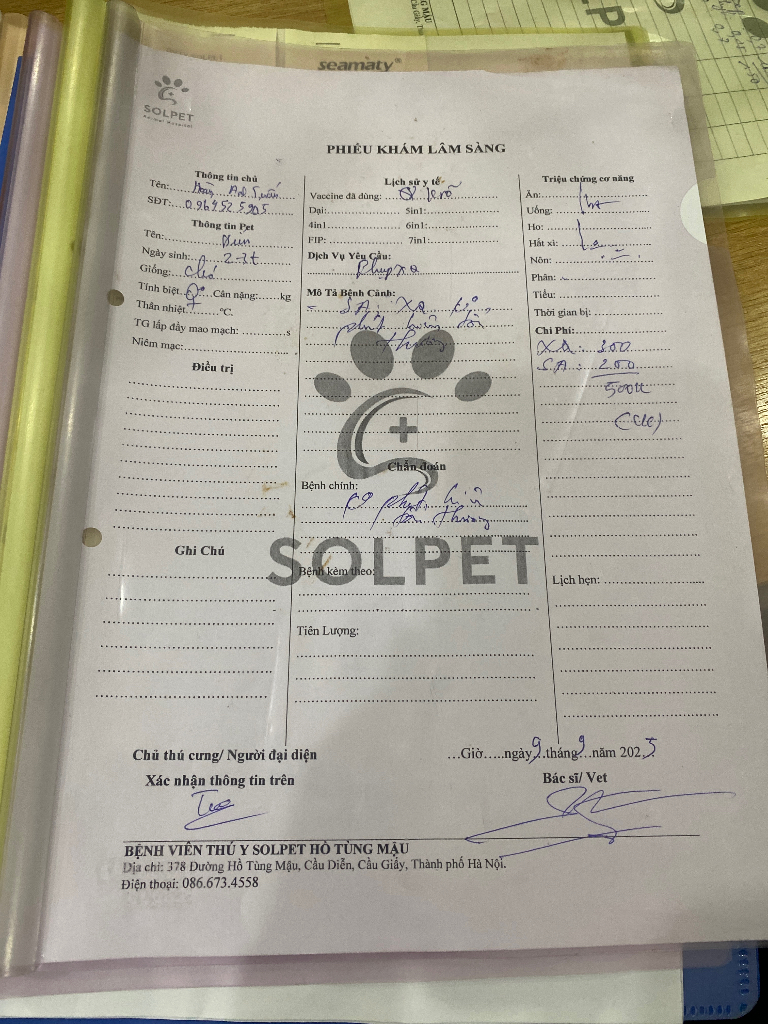 seamaty
SOLPET
Animal Hospital
PHIẾU KHÁM LÂM SÀNG
Thông tin chủ
Tên:
SĐT:
Thông tin Pet
Tên:
Ngày sinh: 2-3t
Giống: chó
Tính biệt: Cân nặng: kg
Thân nhiệt: °C.
TG lấp đầy mao mạch: s
Niêm mạc:
Điều trị
Ghi Chú
Lịch sử y tế
Vaccine đã dùng: rõ
Dại: 5in1:
4in1 6in1:
FIP: 7in1:
Dịch Vụ Yêu Cầu:
chụp XQ
Mô Tả Bệnh Cảnh:
- SA, XQ
phát hiện tổn
thương
Chẩn đoán
Bệnh chính:
phát hiện
tổn thương
SOLPET
Bệnh kèm theo:
Tiên Lượng:
Triệu chứng cơ năng
Ăn:
Uống:
Ho:
Hắt xì:
Nôn:
Phân:
Tiểu:
Thời gian bị:
Chi Phí:
XQ: 300
SA: 200
500k
(CK)
Lịch hẹn:
Chủ thú cưng/ Người đại diện
Xác nhận thông tin trên
...Giờ.....ngày 9 tháng 9 năm 2025
Bác sĩ/ Vet
BỆNH VIÊN THÚ Y SOLPET HỒ TÙNG MẬU
Địa chỉ: 378 Đường Hồ Tùng Mậu, Cầu Diễn, Cầu Giấy, Thành phố Hà Nội.
Điện thoại: 086.673.4558